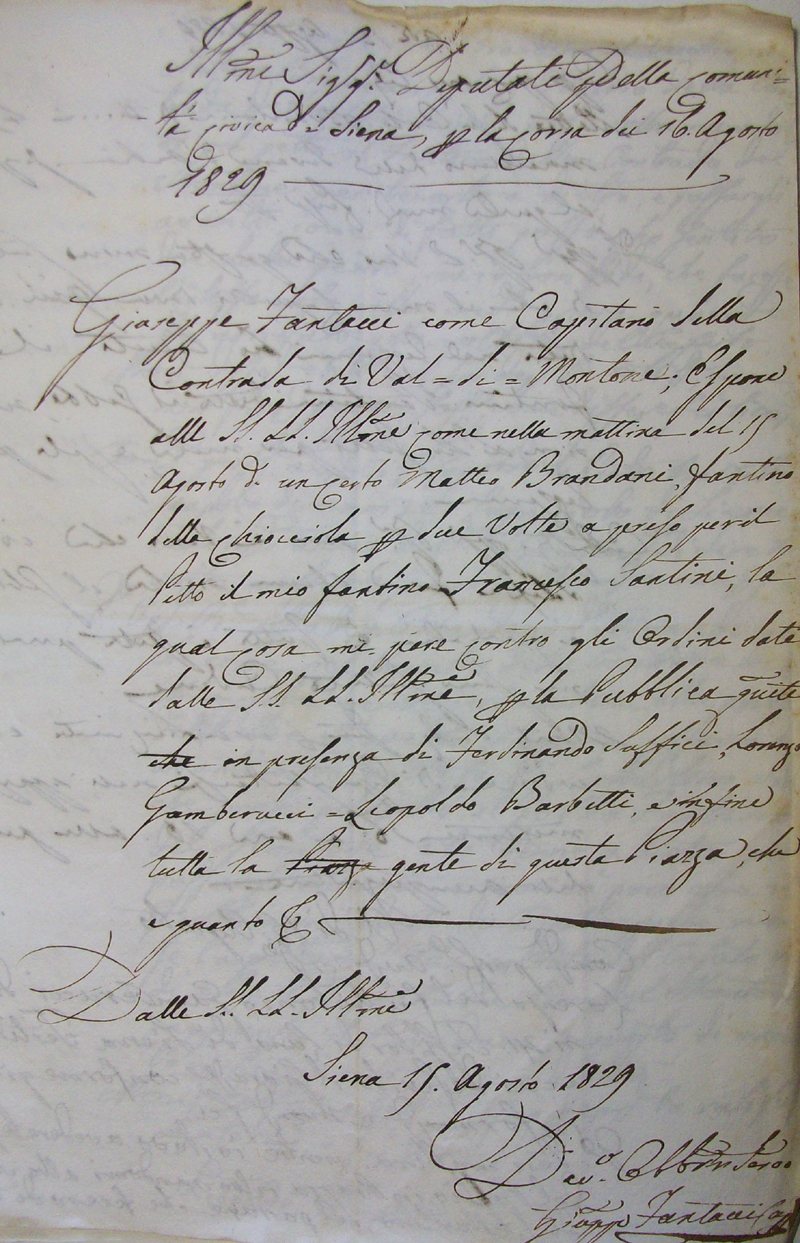 Ill:me Sigg:ri Deputati della comuni=
tà civica di Siena, p la corsa dei 16. Agosto
1829
Giuseppe Fantacci come Capitano della
Contrada di Val=di=Montone; Espone
alle SS. LL. Ill:me come nella mattina del 15
Agosto d. un certo Matteo Brandani, fantino
della chiocciola p due Volte a preso per il
Petto il mio fantino Francesco Santini, la
qual cosa mi pare contro gli Ordini date
dalle SS. LL. Ill:me, p la Pubblica quiete
che in presenza di Ferdinando Soffici, Lorenzo
Gamberucci = Leopoldo Barbetti, e infine
tutta la Piazz gente di questa Piazza, che
e quanto &
Dalle SS. LL. Ill:me
Siena 15. Agosto 1829
Dev:o Obb:mo Servo
Giuseppe Fantacci Cap